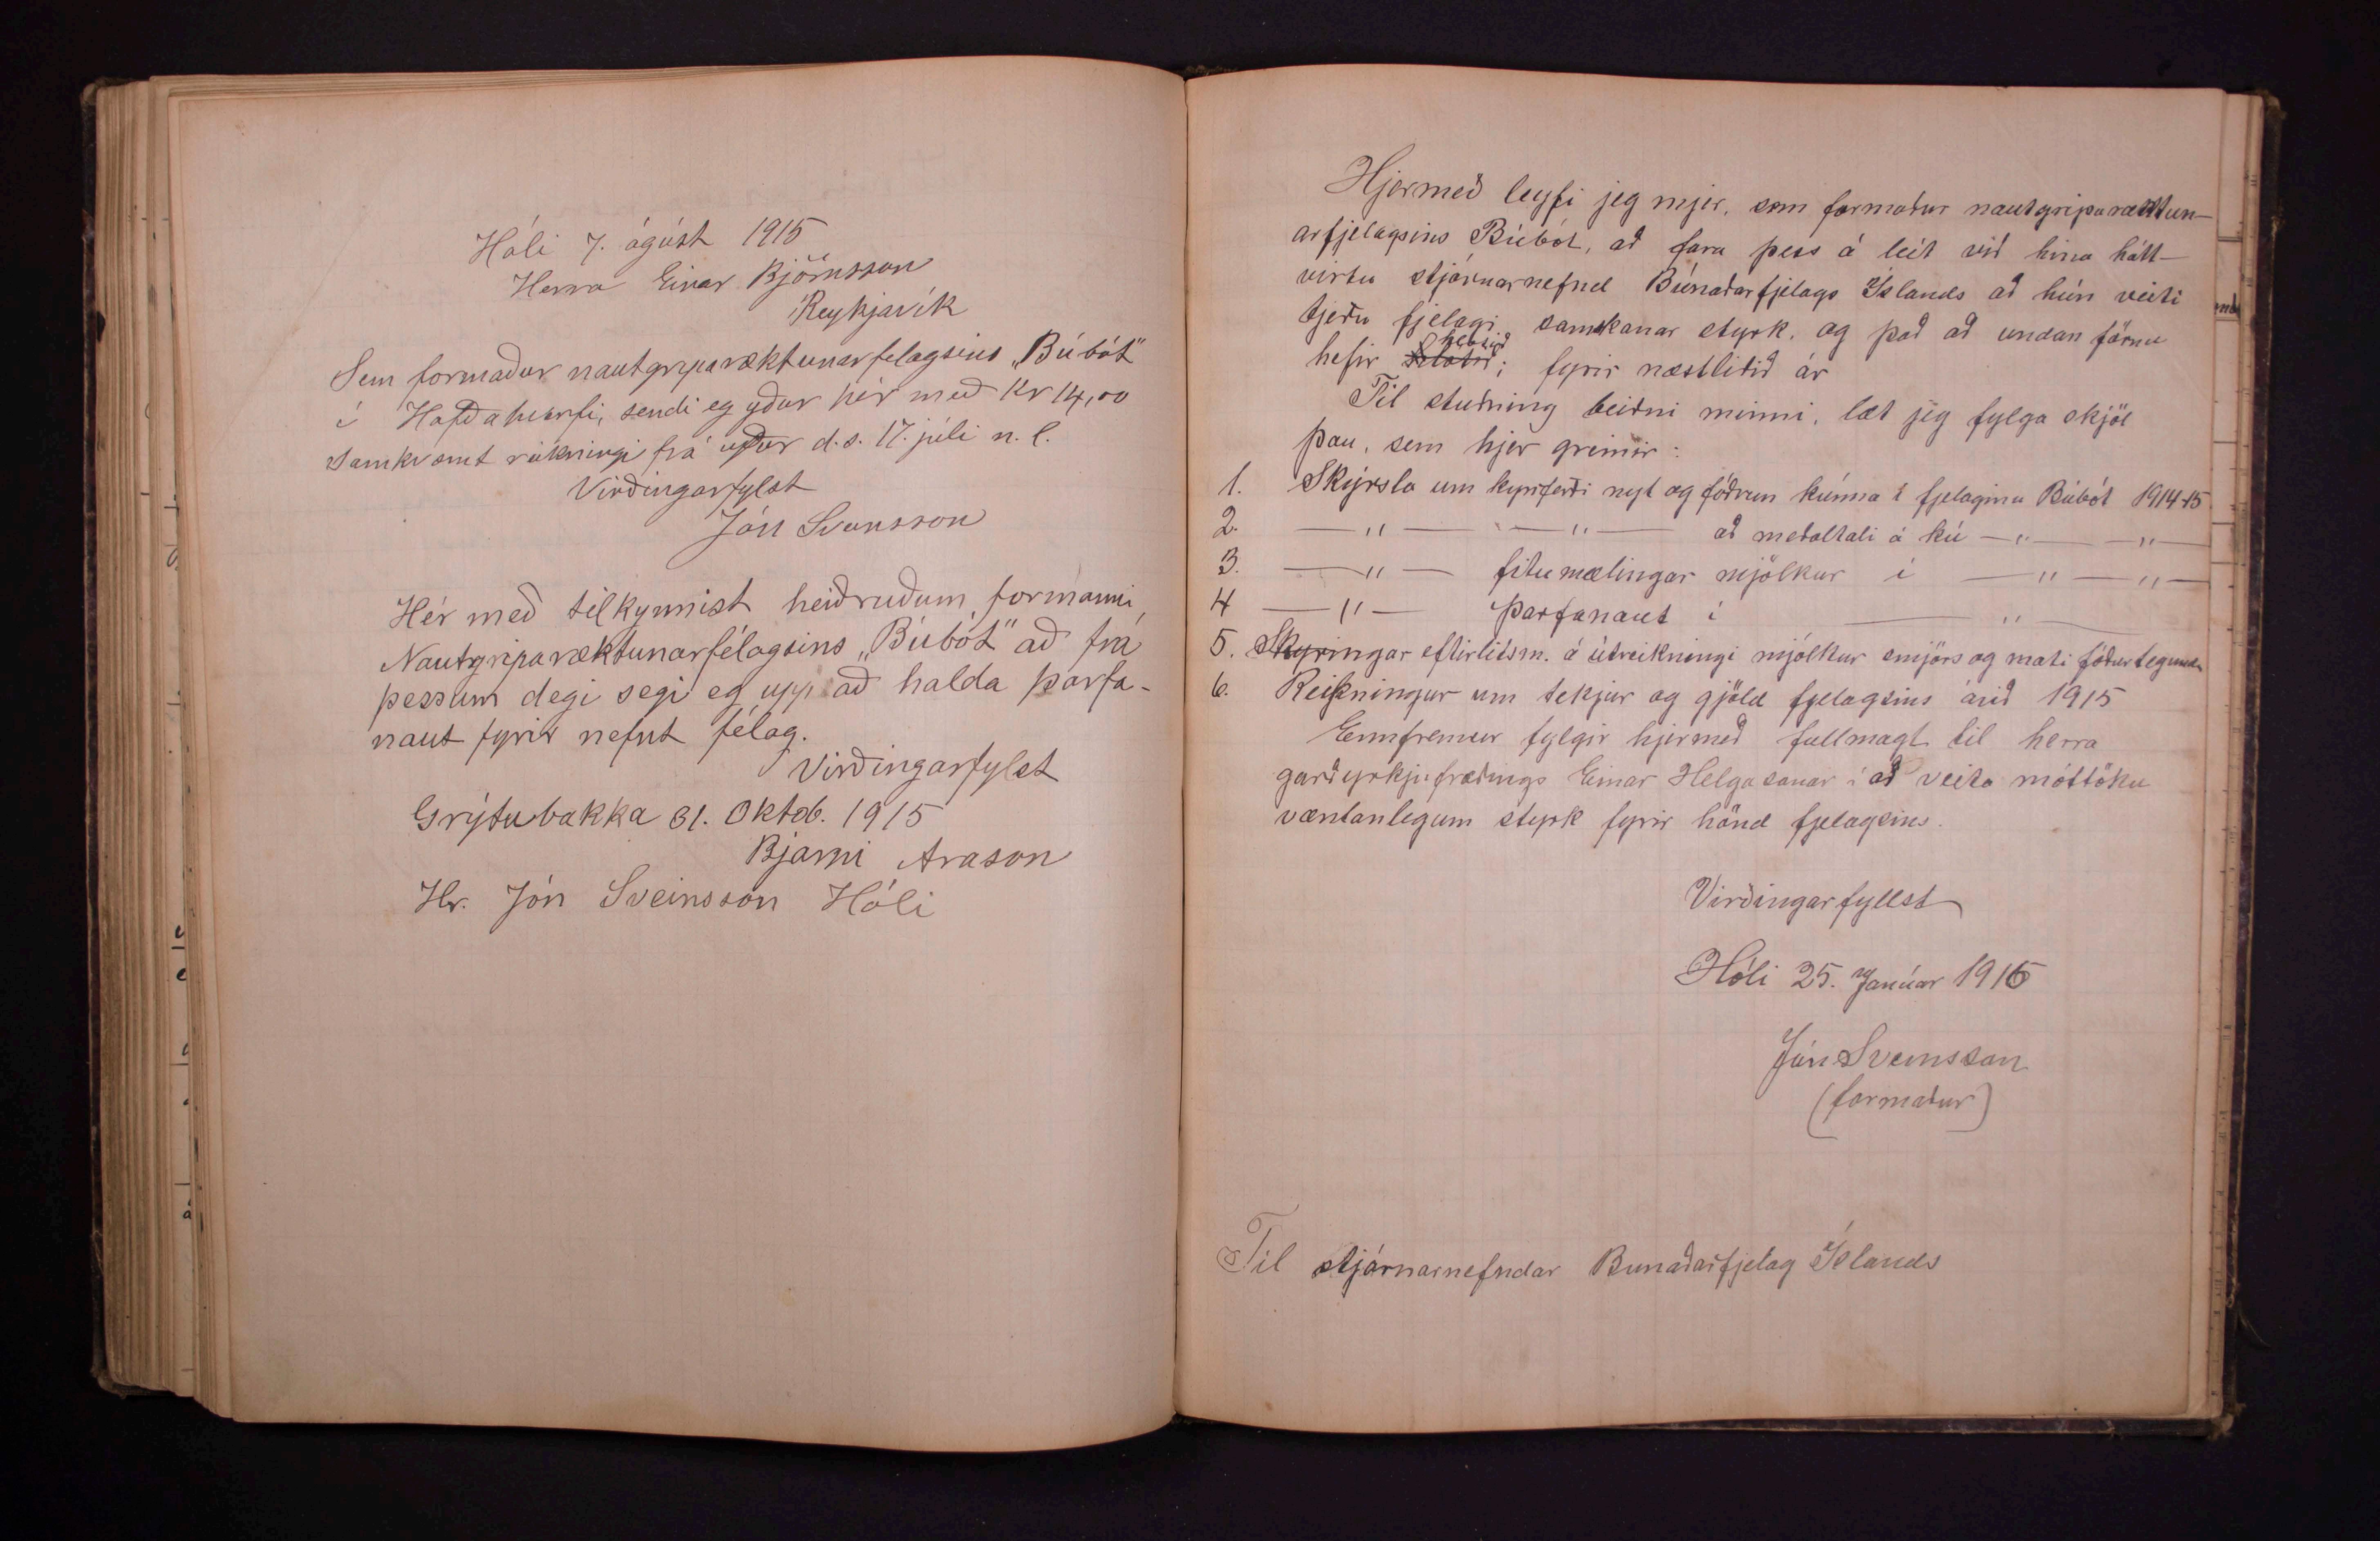 Hóli 7. ágúst 1915
Herra Einar Björnsson
Reykjavík
Sem formaður nautgriparæktunarfelagsins „Búbót"
í Höfðahverfi, sendi eg yður hér með Kr 14,00
samkvæmt reikningi frá yður d.s. 17. júli n.l.
Virðingarfylst
Jón Sveinsson
Hér með tilkynnist heiðruðum formanni
Nautgriparæktunarfélagsins „Búbót" að frá
þessum degi segi eg upp að halda þarfa-
naut fyrir nefnt félag.
Virðingarfylst
Grýtubakka 31. Oktob. 1915
Bjarni Arason
Hr. Jón Sveinsson Hóli
Hjermeð leyfi jeg mjer, sem formaður nautgriparæktun-
arfjelagsins Búbót, að fara þess á leit við hina hátt-
virtu stjórnarnefnd Búnaðarfjelags Íslands að hún veiti
tjeðu fjelagi samskonar styrk, og það að undan förnu
hefir hlotið; fyrir næstliðið ár
Til stuðning beiðni minni, læt jeg fylga skjöl
þau, sem hjer greinir:
1. Skýrsla um kynferði nyt og fóðrun kúnna í fjelaginu Búbót 1914-15
2. —„— —„— að meðaltali á kú —„— —„—
3. —„— fitumælingar mjólkur í —„— —„—
4 —„— Þarfanaut í —„—
5. Skyringar eftirlitsm. á útreikningi mjólkur smjörs og mati fóðurtegunda
6. Reikningur um tekjur og gjöld fjelagsins árið 1915
Ennfremur fylgir hjermeð fullmagt til herra
garðyrkjufræðings Einar Helgasonar í að veita móttöku
væntanlegum styrk fyrir hönd fjelagsins.
Virðingarfyllst
Hóli 25. Janúar 1916
Jón Sveinsson
(formaður)
Til stjórnarnefndar Bunaðarfjelag Íslands